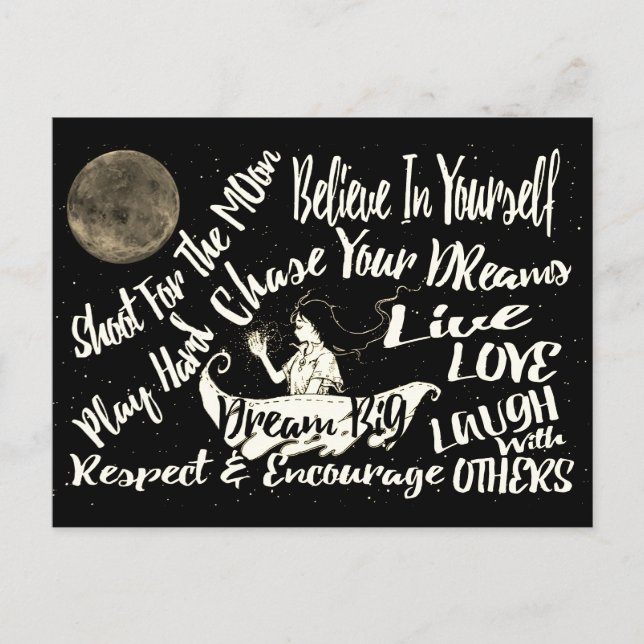 Believe In Yourself
Shoot For The MOon
Chase Your DReams
Play Hard
Live
LOVE
LAUGH
With
OTHERS
Dream BiG
Respect & Encourage